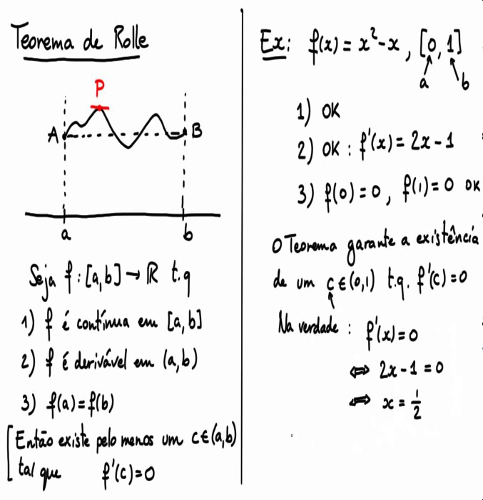 Teorema de Rolle
P
A
B
a
b
Seja f : [a,b] → ℝ t.q
1) f é contínua em [a,b]
2) f é derivável em (a,b)
3) f(a)=f(b)
Então existe pelo menos um c∈(a,b)
tal que f'(c)=0
Ex: f(x) = x²-x , [0,1]
a
b
1) OK
2) OK : f'(x) = 2x-1
3) f(0)=0 , f(1)=0 OK
O Teorema garante a existência
de um c∈(0,1) t.q. f'(c)=0
Na verdade : f'(x)=0
⇔ 2x-1=0
⇔ x = 1/2